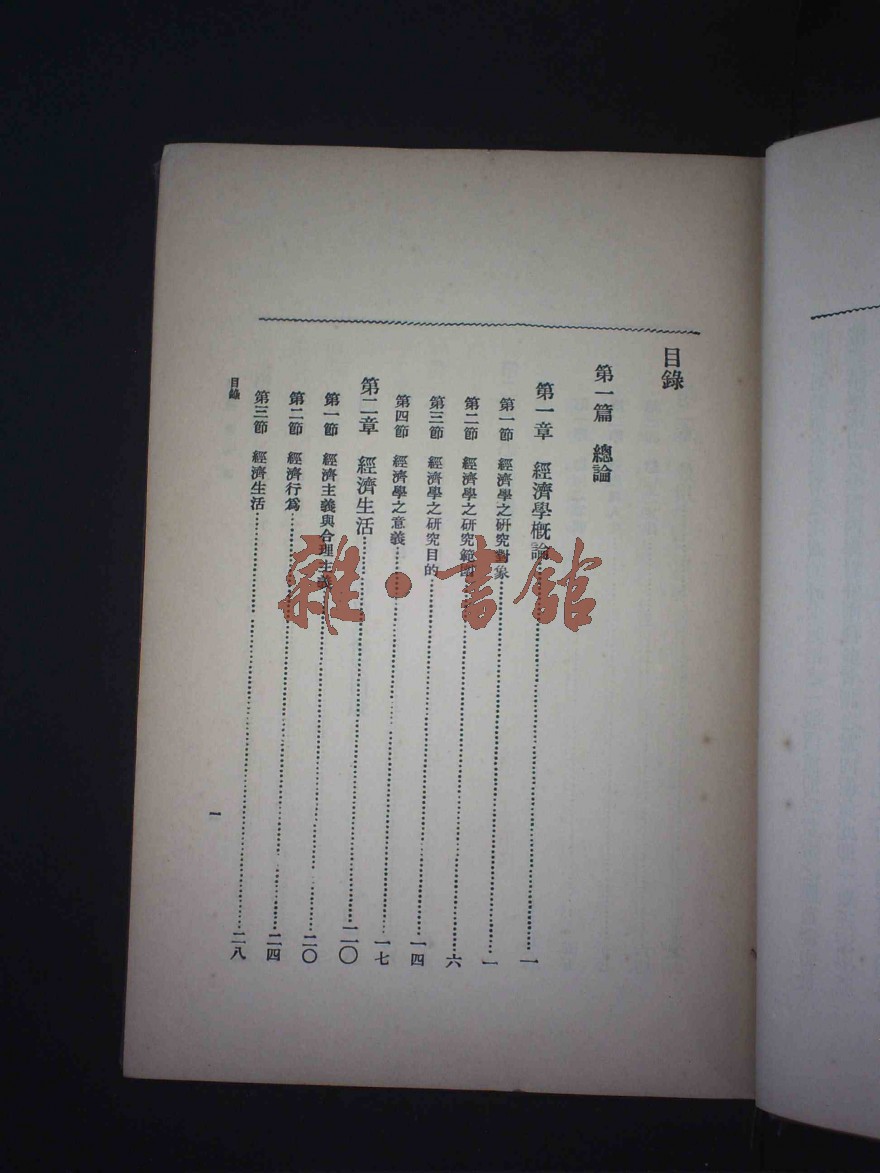 目錄
第一篇 總論
第一章 經濟學概論……一
第一節 經濟學之研究對象……一
第二節 經濟學之研究範圍……六
第三節 經濟學之研究目的……一四
第四節 經濟學之意義……一七
第二章 經濟生活……二〇
第一節 經濟主義與合理主義……二〇
第二節 經濟行為……二四
第三節 經濟生活……二八
目錄
一
雜·書館